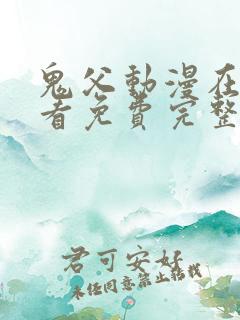 鬼父動漫在
看免費完整
君可安好
未经同意禁止转载